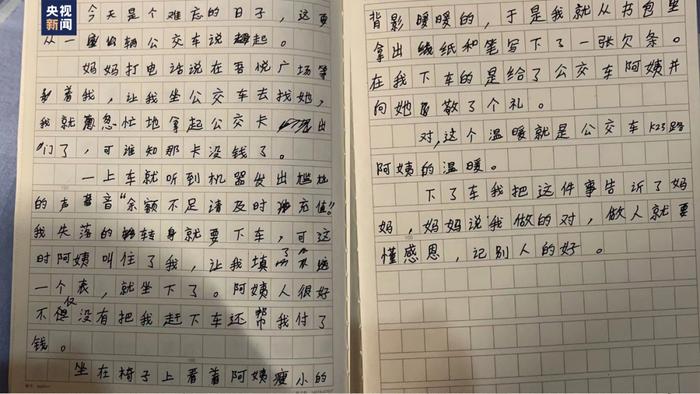 央视
新闻
今天是个难忘的日子，这要
从一辆公交车说起。
妈妈打电话说在吾悦广场等
着我，让我坐公交车去找她，
我就急忙地拿起公交卡出
门了，可谁知那卡没钱了。
一上车就听到机器发出尴尬
的声音"余额不足请及时充值！"
我失落的转身就要下车，可这
时阿姨叫住了我，让我填了
一个表，就坐下了。阿姨人很好
不仅没有把我赶下车还帮我付了
钱。
坐在椅子上看着阿姨瘦小的
背影暖暖的，于是我就从书包里
拿出纸和笔写下了一张欠条。
在我下车的是给了公交车阿姨并
向她敬了个礼。
对，这个温暖就是公交车K23路
阿姨的温暖。
下了车我把这件事告诉了妈
妈，妈妈说我做的对，做人就要
懂感恩，记别人的好。